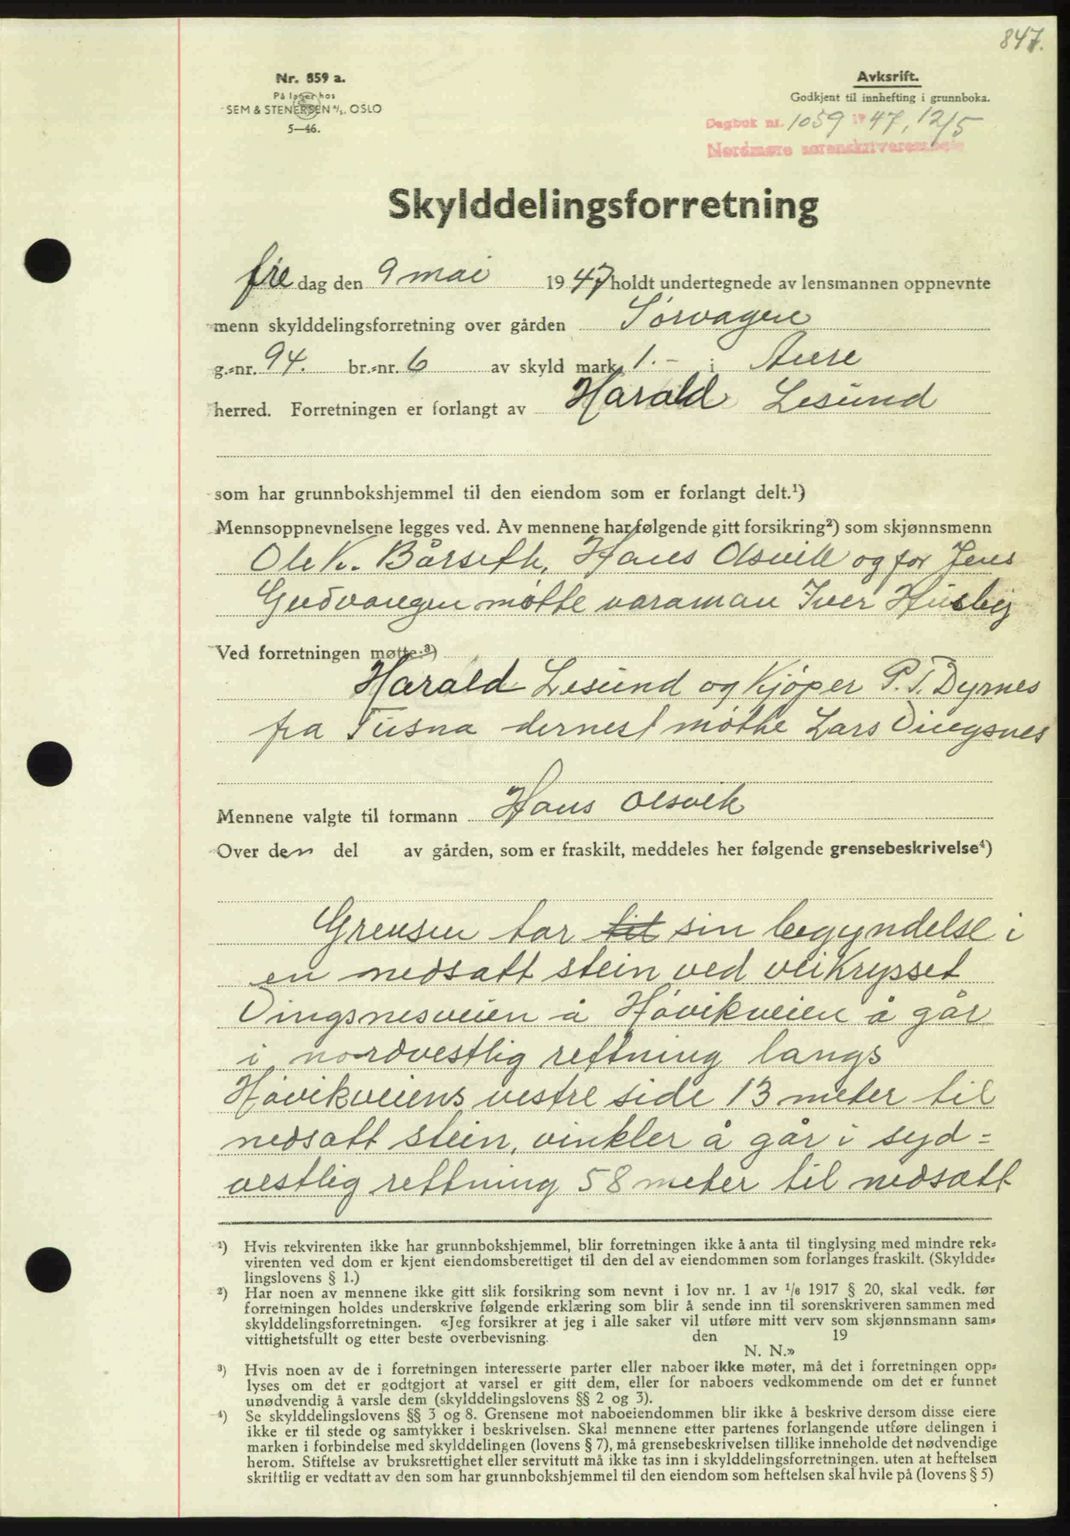 847.
Nr. 859 a.
På lager hos
SEM & STENERSEN A/S, OSLO
5—46.
Avksrift.
Godkjent til innhefting i grunnboka.
Dagbok nr. 1059 1947, 12/5
Nordmøre sorenskriverembede
Skylddelingsforretning
fredag den 9 mai 1947 holdt undertegnede av lensmannen oppnevnte
menn skylddelingsforretning over gården Sørvagen
g.-nr. 94. br.-nr. 6 av skyld mark 1.- i Aure
herred. Forretningen er forlangt av Harald Lesund
som har grunnbokshjemmel til den eiendom som er forlangt delt.¹)
Mennsoppnevnelsene legges ved. Av mennene har følgende gitt forsikring²) som skjønnsmenn
Ole K. Bårseth, Hans Olsvik og for Jens
Gudvangen møtte varaman Iver Husby
Ved forretningen møtte:³)
Harald Lesund og Kjøper P. T. Dyrnes
fra Tusna dernest møtte Lars Vingsnes
Mennene valgte til formann Hans Olsvik
Over den del av gården, som er fraskilt, meddeles her følgende grensebeskrivelse⁴)
Grensen tar til sin begyndelse i
en nedsatt stein ved veikrysset
Vingsnesveien å Høvikveien å går
i nordvestlig rettning langs
Høvikveiens vestre side 13 meter til
nedsatt stein, vinkler å går i syd=
vestlig rettning 58 meter til nedsatt
¹) Hvis rekvirenten ikke har grunnbokshjemmel, blir forretningen ikke å anta til tinglysing med mindre rek-
virenten ved dom er kjent eiendomsberettiget til den del av eiendommen som forlanges fraskilt. (Skyldde-
lingslovens § 1.)
²) Har noen av mennene ikke gitt slik forsikring som nevnt i lov nr. 1 av 1/6 1917 § 20, skal vedk. før
forretningen holdes underskrive følgende erklæring som blir å sende inn til sorenskriveren sammen med
skylddelingsforretningen. «Jeg forsikrer at jeg i alle saker vil utføre mitt verv som skjønnsmann sam-
vittighetsfullt og etter beste overbevisning. den 19
N. N.»
³) Hvis noen av de i forretningen interesserte parter eller naboer ikke møter, må det i forretningen opp-
lyses om det er godtgjort at varsel er gitt dem, eller for naboers vedkommende om det er funnet
unødvendig å varsle dem (skylddelingslovens §§ 2 og 3).
⁴) Se skylddelingslovens §§ 3 og 8. Grensene mot naboeiendommen blir ikke å beskrive dersom disse eiere
ikke er til stede og samtykker i beskrivelsen. Skal mennene etter partenes forlangende utføre delingen i
marken i forbindelse med skylddelingen (lovens § 7), må grensebeskrivelsen tillike inneholde det nødvendige
herom. Stiftelse av bruksrettighet eller servitutt må ikke tas inn i skylddelingsforretningen. uten at heftelsen
skriftlig er vedtatt av den som har grunnbokshjemmel til den eiendom som heftelsen skal hvile på (lovens § 5)